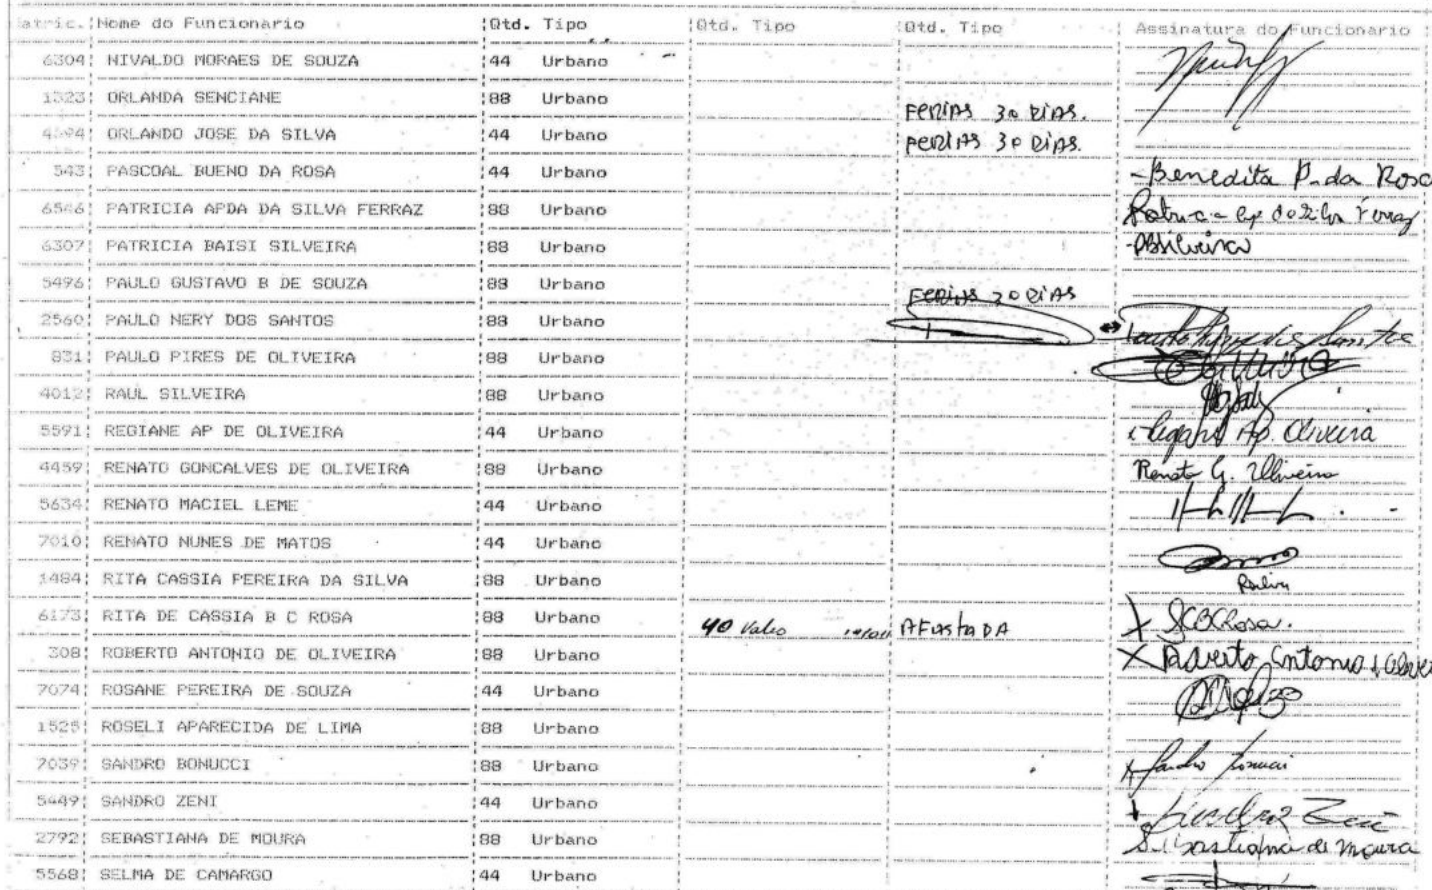 atric. Nome do Funcionario Qtd. Tipo Qtd. Tipo Qtd. Tipo Assinatura do Funcionario
6304 NIVALDO MORAES DE SOUZA 44 Urbano
1323 ORLANDA SENCIANE 88 Urbano FERIAS 30 DIAS.
ORLANDO JOSE DA SILVA 44 Urbano FERIAS 30 DIAS.
543 PASCOAL BUENO DA ROSA 44 Urbano - Benedita P. da Rosa
6546 PATRICIA APDA DA SILVA FERRAZ 88 Urbano
6307 PATRICIA BAISI SILVEIRA 88 Urbano
5496 PAULO GUSTAVO B DE SOUZA 88 Urbano FERIAS 20 DIAS
2560 PAULO NERY DOS SANTOS 88 Urbano
831 PAULO PIRES DE OLIVEIRA 88 Urbano
4012 RAUL SILVEIRA 88 Urbano
5591 REGIANE AP DE OLIVEIRA 44 Urbano Regiane Ap Oliveira
4459 RENATO GONCALVES DE OLIVEIRA 88 Urbano Renato G. Oliveira
5634 RENATO MACIEL LEME 44 Urbano
7010 RENATO NUNES DE MATOS 44 Urbano
1484 RITA CASSIA PEREIRA DA SILVA 88 Urbano
6173 RITA DE CASSIA B C ROSA 88 Urbano 40 Vales AFASTADA
308 ROBERTO ANTONIO DE OLIVEIRA 88 Urbano X Roberto Antonio
7074 ROSANE PEREIRA DE SOUZA 44 Urbano
1525 ROSELI APARECIDA DE LIMA 88 Urbano
7039 SANDRO BONUCCI 88 Urbano
5449 SANDRO ZENI 44 Urbano
2792 SEBASTIANA DE MOURA 88 Urbano Sebastiana de Moura
5568 SELMA DE CAMARGO 44 Urbano